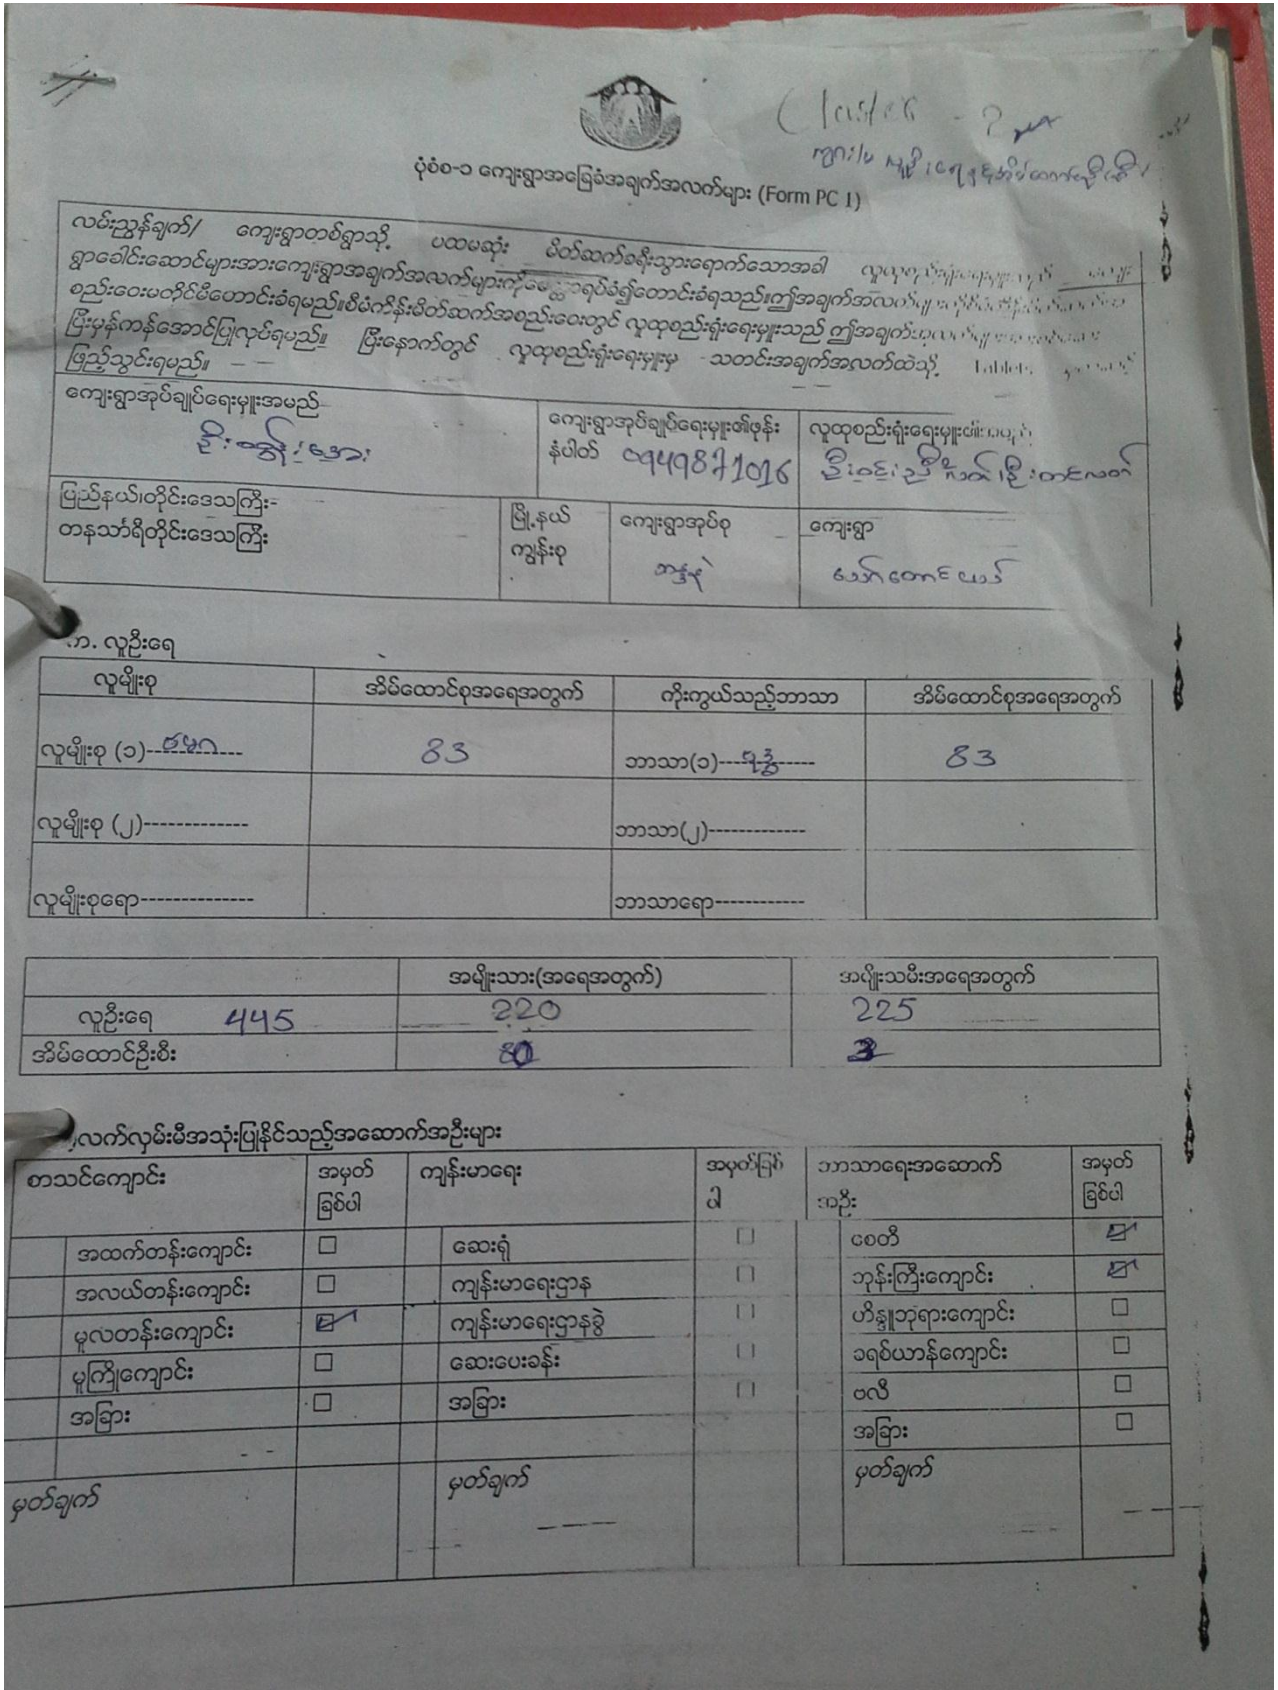 ပုံစံစ-၁ ကျေးရွာအခြေခံအချက်အလက်များ (Form PC 1)
လမ်းညွှန်ချက်/ ကျေးရွာတစ်ရွာသို့ ပထမဆုံး မိတ်ဆက်ခရီးသွားရောက်သောအခါ
ရွာခေါင်းဆောင်များအားကျေးရွာအချက်အလက်များကိုမေတ္တာရပ်ခံ၍တောင်းခံရသည်။ဤအချက်အလက်များ
စည်းဝေးမတိုင်မီတောင်းခံရမည်။စီမံကိန်းမိတ်ဆက်အစည်းဝေးတွင် လူထုစည်းရုံးရေးမှူးသည် ဤအချက်အလက်များ
ပြီးမှန်ကန်အောင်ပြုလုပ်ရမည်။ ပြီးနောက်တွင် လူထုစည်းရုံးရေးမှူးမှ သတင်းအချက်အလက်ထဲသို့ Tablets
ဖြည့်သွင်းရမည်။
ကျေးရွာအုပ်ချုပ်ရေးမှူးအမည်
ကျေးရွာအုပ်ချုပ်ရေးမှူး၏ဖုန်းနံပါတ် 0949871016
လူထုစည်းရုံးရေးမှူး၏အမည်
ပြည်နယ်၊တိုင်းဒေသကြီး-
တနင်္သာရီတိုင်းဒေသကြီး
မြို့နယ်
ကျွန်းစု
ကျေးရွာအုပ်စု
ကျေးရွာ
က. လူဦးရေ
လူမျိုးစု အိမ်ထောင်စုအရေအတွက် ကိုးကွယ်သည့်ဘာသာ အိမ်ထောင်စုအရေအတွက်
လူမျိုးစု (၁)--ဗမာ-- 83 ဘာသာ(၁)---ဗုဒ္ဓ----- 83
လူမျိုးစု (၂)------------- ဘာသာ(၂)-------------
လူမျိုးစုရော-------------- ဘာသာရော------------
အမျိုးသား(အရေအတွက်) အမျိုးသမီးအရေအတွက်
လူဦးရေ 445 220 225
အိမ်ထောင်ဦးစီး
လက်လှမ်းမီအသုံးပြုနိုင်သည့်အဆောက်အဦးများ
စာသင်ကျောင်း အမှတ်ခြစ်ပါ ကျန်းမာရေး အမှတ်ခြစ်ပါ ဘာသာရေးအဆောက်အဦး အမှတ်ခြစ်ပါ
အထက်တန်းကျောင်း ဆေးရုံ စေတီ
အလယ်တန်းကျောင်း ကျန်းမာရေးဌာန ဘုန်းကြီးကျောင်း
မူလတန်းကျောင်း ကျန်းမာရေးဌာနခွဲ ဟိန္ဒူဘုရားကျောင်း
မူကြိုကျောင်း ဆေးပေးခန်း ခရစ်ယာန်ကျောင်း
အခြား အခြား ဗလီ
အခြား
မှတ်ချက် မှတ်ချက် မှတ်ချက်